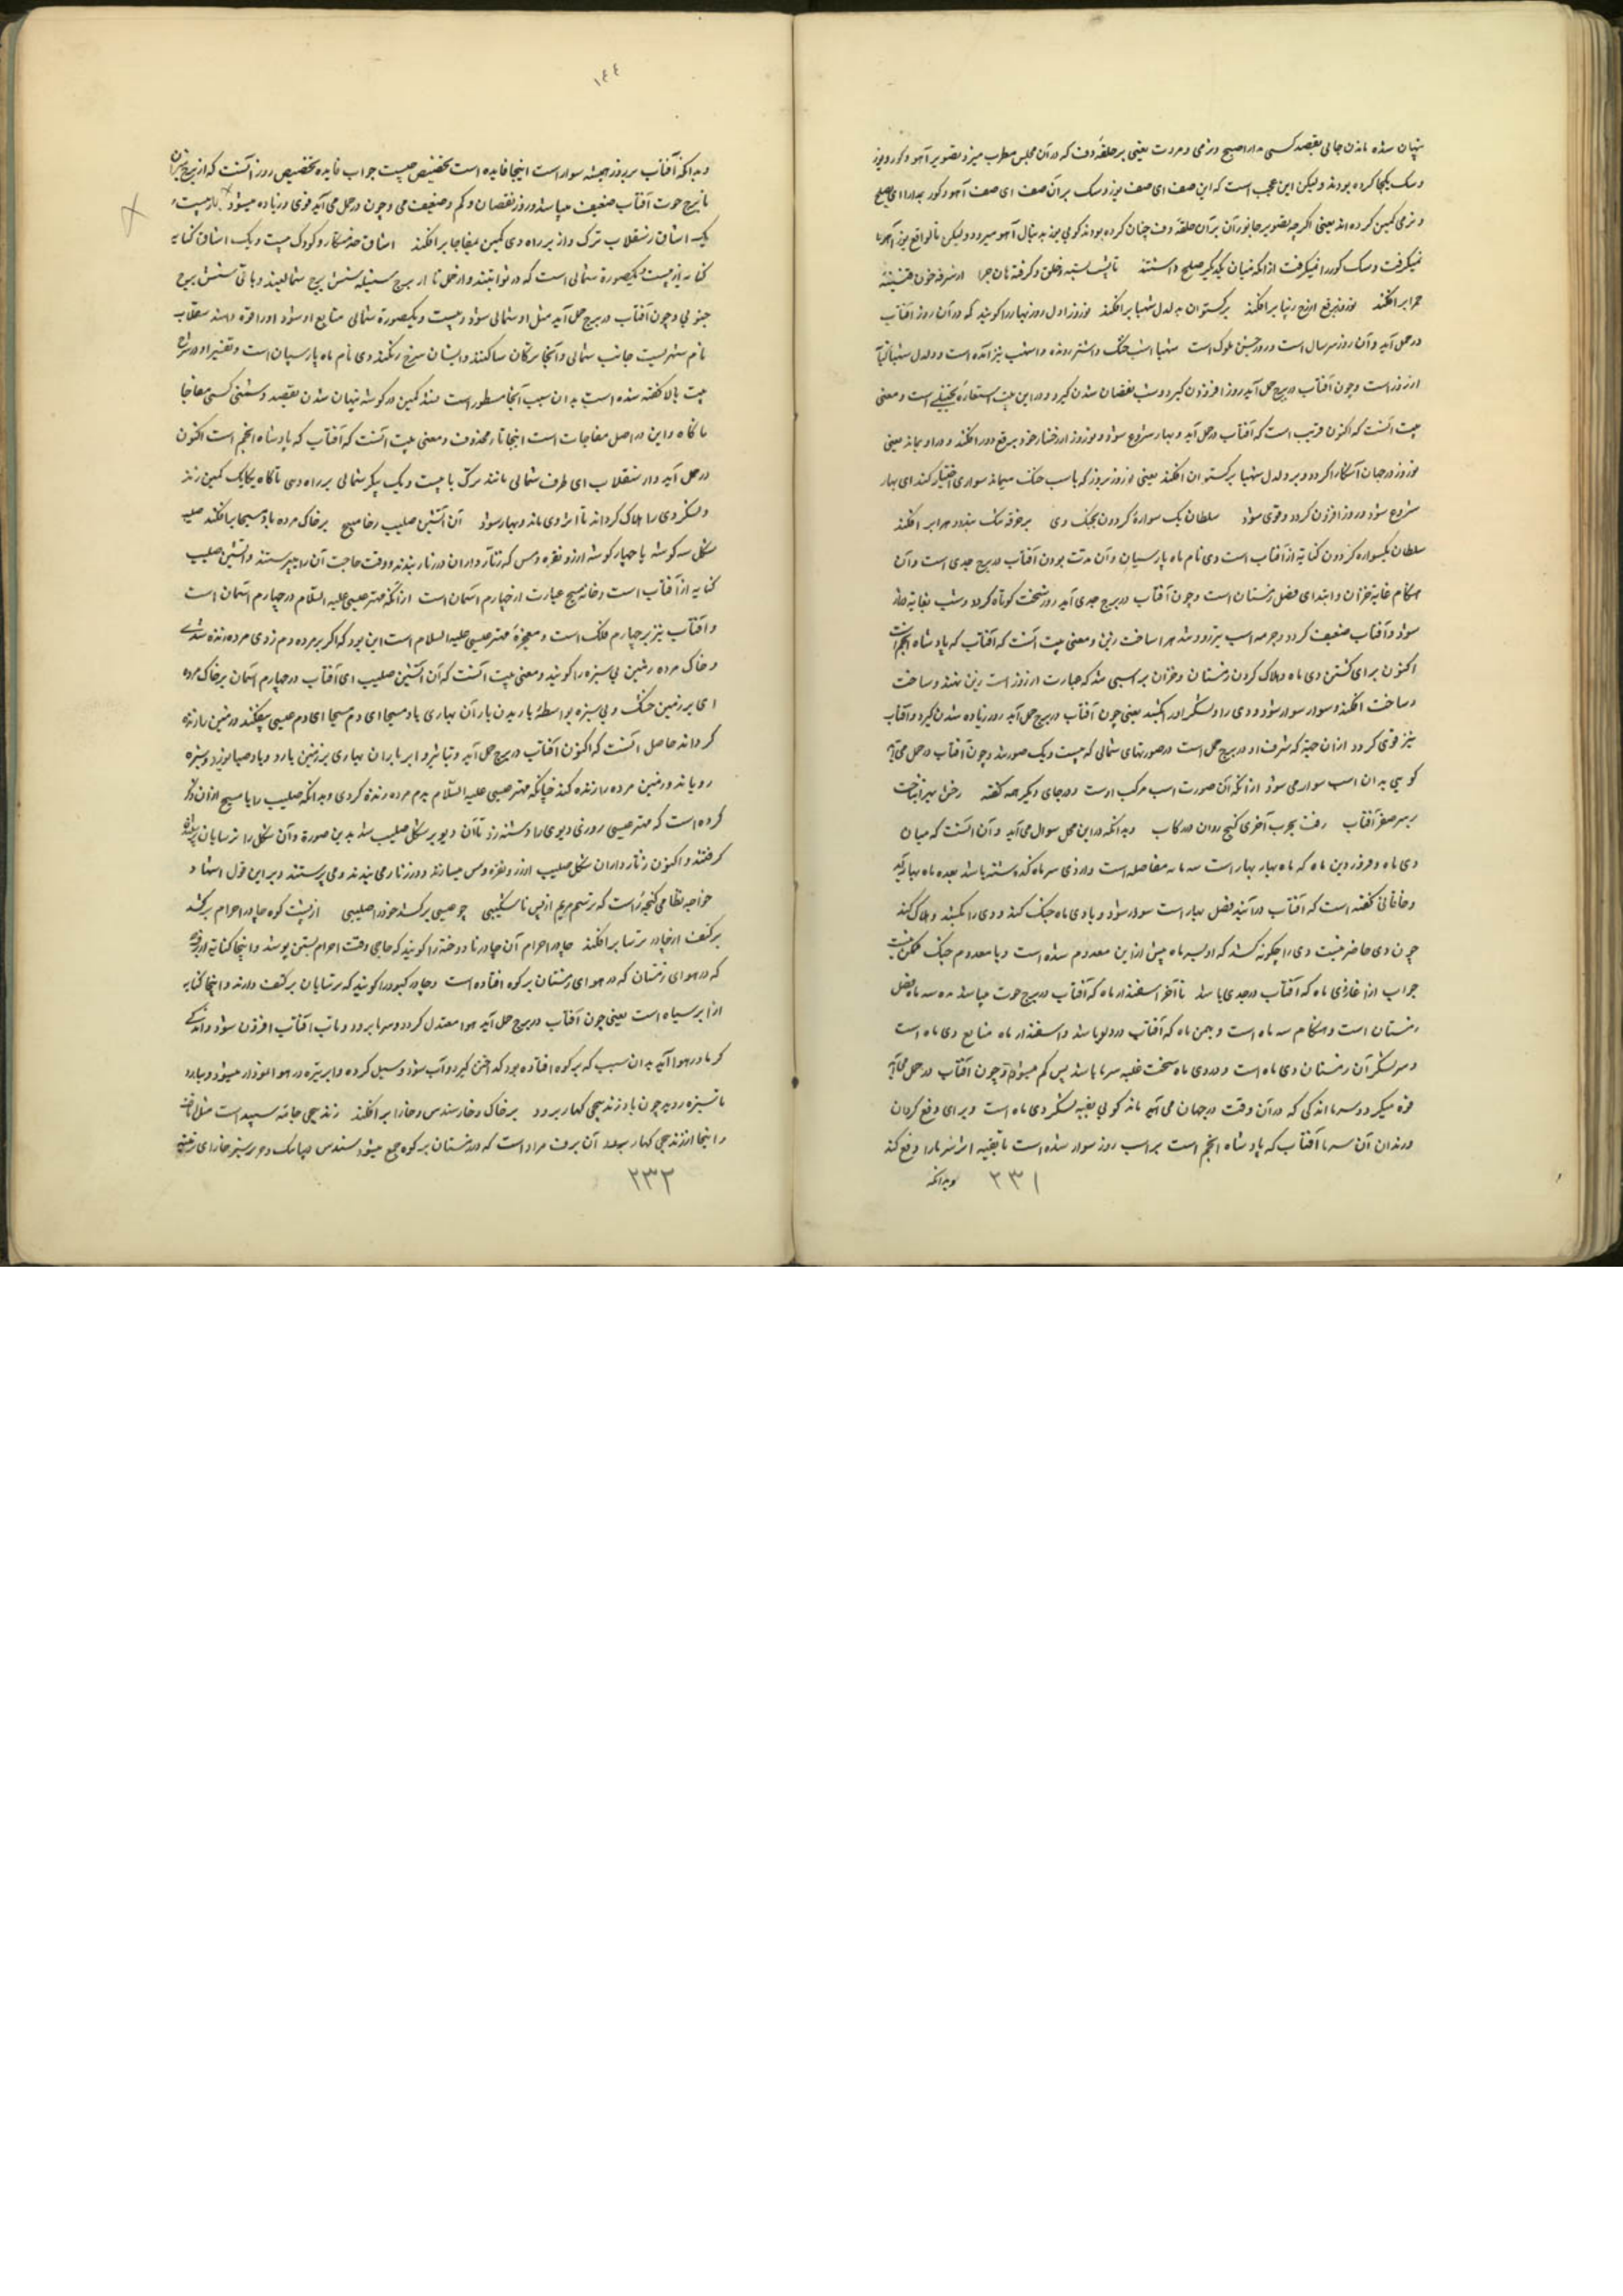 پنهان شده ماندن جائی بقصد کسی مدارا صبح و نرمی و مروت یعنی بر حلقهٔ دف که در آن مجلس مطرب میزد تصویر آهو و کور و یوز
و سک یکجا کرده بودند ولیکن این عجب است که این صف ای صف یوز و سک بر آن صف ای صف آهو و کور بمدارا ای بصلح
و نرمی کمین کرده اند یعنی اکرچه تصویر جانوران بر آن حلقهٔ دف چنان کرده بودند کوئی یوز به دنبال آهو میرود ولیکن تا بواقع یوز آهو را
نمیکرفت و سک کور را نمیکرفت از انکه میان یکدیکر صلح داشتند
حمرا برافکند نوروز برقع از رخ زیبا برافکند برکستوان به دلدل شهبا برافکند نوروز اول روز بهار را کویند که در آن روز آفتاب
در حمل آید و آن روز سر سال است و روز جشن ملوک است شهبا اسب خنک و اشتر رونده و اشهب نیز آمده است و دلدل شهبا کنایه
از روز است و چون آفتاب در برج حمل آید روز افزودن کیرد و شب نقصان شدن کیرد و در این بیت استعارهٔ تخییلی است و معنی
بیت آنست که اکنون قریب است که آفتاب در حمل آید و بهار شروع شود و نوروز از رخسار خود برقع دور افکند و در او نماند یعنی
نوروز در جهان آشکارا کردد و بر دلدل شهبا برکستوان افکند یعنی نوروز بر روز که باسب خنک میماند سواری اختیار کند ای بهار
شروع شود و روز افزون کردد و قوی شود سلطان یک سوارهٔ کردون بجنک دی بر خرقه تنک بندد و هرا بر افکند
سلطان یکسواره کردون کنایه از آفتاب است دی نام ماه پارسیان و آن مدت بودن آفتاب در برج جدی است و آن
هنکام غایة خزان و ابتدای فصل زمستان است و چون آفتاب در برج جدی آید روز سخت کوتاه کردد و شب بغایة دراز
شود و آفتاب ضعیف کردد و چرمه اسب تیزرو شد هرا ساخت زین و معنی بیت آنست که آفتاب که پادشاه انجم است
اکنون برای کشتن دی ماه و هلاک کردن زمستان و خزان بر اسبی شد که عبارت از روز است زین نهند و ساخت
و ساخت افکند و سوار شود و دی را و لشکر او را بکشد یعنی چون آفتاب در برج حمل آید روز زیاده شدن کیرد و آفتاب
نیز قوی کردد از ان جهة که شرف او در برج حمل است در صورتهای شمالی که بیست و یک صورتند و چون آفتاب در حمل می آید
کوئی بدان اسب سوار می شود از انکه آن صورت اسب مرکب اوست و در جای دیکر هم کفته رخش بهرا بتاخت
بر سر صفر آفتاب رفت بچرب آخری کنج روان در رکاب و بدانکه در این محل سوال می آید و آن آنست که میان
دی ماه و فروردین ماه که ماه بهار بهار است سه ماه مفاصله است و از دی سه ماه کذشته باشد بعده ماه بهار آید
و خاقانی کفته است که آفتاب در آیند فصل بهار است سوار شود و با دی ماه جنک کند و دی را بکشد و هلاک کند
چون دی حاضر نیست دی را چکونه کشد که او سه ماه پیش از این معدوم شده است و با معدوم جنک ممکن نیست
جواب از آغاز دی ماه که آفتاب در جدی باشد تا آخر اسفندار ماه که آفتاب در برج حوت میباشد مدت سه ماه فصل
زمستان است و هنکام سه ماه است و بهمن ماه که آفتاب در دلو باشد و اسفندار ماه متابع دی ماه است
و سر لشکر آن زمستان دی ماه است و در دی ماه سخت غلبه سرما باشد پس کم میشود و چون آفتاب در حمل می آید
قوه میکیرد و سرما اندکی که در آن وقت در جهان می آید ماند کوئی بقیه لشکر دی ماه است و برای دفع کردن
و راندن آن سرما آفتاب که پادشاه انجم است بر اسب روز سوار شده است تا بقیه اثر سرما را دفع کند
۲۳۱ و بدانکه
۱۴۴
و بدانکه آفتاب بر روز همیشه سوار است اینجا فایده است تخصیص چیست جواب فایده تخصیص روز آنست که از برج میزان
تا برج حوت آفتاب ضعیف میباشد و روز نقصان و کم و ضعیف می و چون در حمل می آید قوی و زیاده میشود بازبیست و
یک اشاق ز سقلاب ترک وار بر راه دی کمین بمفاجا برافکند اشاق خدمتکار و کودک بیست و یک اشاق کنایه
کنایه از بیست و یکصورة شمالی است که در ثوابتند و از حمل تا برج سنبله شش برج شمالیند و باقی شش برج
جنوبی و چون آفتاب در برج حمل آید میل او شمالی شود و بیست و یکصورة شمالی متابع او شود او را قوة دهند سقلاب
نام شهریست جانب شمالی و آنجا ترکان ساکنند و ایشان سرخ رنکند دی نام ماه پارسیان است و تفسیر او در شرح
بیت بالا کفته شده است بدان سبب آنجا مسطور است کمین در کوشه پنهان شدن بقصد دشمنی کسی مفاجا
ناکاه و این در اصل مفاجات است اینجا تا محذوف و معنی بیت آنست که آفتاب که پادشاه انجم است اکنون
در حمل آید و از سقلاب ای طرف شمالی مانند ترک با بیست و یک پیکر شمالی بر راه دی ناکاه یکایک کمین زند
و لشکر دی را هلاک کرداند تا اثر دی نماند و بهار شود آن آتشین صلیب در آن خانه مسیح بر خاک مرده باد مسیحا برافکند صلیب
شکل سه کوشه یا چهار کوشه از زر و نقره و مس که زنار داران در زنار بندند و وقت حاجت آن را بپرستند و آتشین صلیب
کنایه از آفتاب است و خانه مسیح عبارت از چهارم آسمان است از انکه مهتر عیسی علیه السلام در چهارم آسمان است
و آفتاب نیز بر چهارم فلک است و معجزهٔ مهتر عیسی علیه السلام است این بود که اکر بر مرده دم زدی مرده زنده شدی
و خاک مرده زمین بی سبزه را کویند و معنی بیت آنست که آن آتشین صلیب ای آفتاب در چهارم آسمان بر خاک مرده
ای بر زمین خشک و بی سبزه بواسطهٔ باریدن باران بهاری باد مسیحا ای دم مسیحا ای دم عیسی بیفکند و زمین را زنده
کرداند حاصل آنست که اکنون آفتاب در برج حمل آید و بتابد و ابر باران بهاری بر زمین بارد و باد صبا بوزد و سبزه
رویاند و زمین مرده را زنده کند چنانکه مهتر عیسی علیه السلام بدم مرده زنده کردی و بدانکه صلیب را با مسیح از ان ذکر
کرده است که مهتر عیسی روزی دیوی را دشنه زد تا آن دیو بر شکل صلیب شد بدین صورة و آن شکل را ترسایان
کرفتند و اکنون زنار داران شکل صلیب از زر و نقره و مس میسازند و در زنار می بندند و می پرستند و بر این قول
خواجه نظامی کنجه راست که ترسم مریم از پس ناشکیبی چو عیسی بر کشد خود را صلیبی از پشت کوه چادر احرام برکشد
بر کتف ابر چادر ترسا برافکند چادر احرام آن چادر نادوخته را کویند که حاجی وقت احرام بستن پوشد و اینجا کنایه از برف
که در هوای زمستان که در هوای زمستان بر کوه افتاده است و چادر کبود را کویند که ترسایان بر کتف دارند و اینجا کنایه
از ابر سیاه است یعنی چون آفتاب در برج حمل آید هوا معتدل کردد و سرما برود و تاب آفتاب افزون شود و اندکی
کرما در هوا آید بدان سبب که بر کوه افتاده بود کداختن کیرد و آب شود و سیل کرده و ابر تیره در هوا نمودار میشود و ببارد
تا سبزه روید چون باد زندپیچی کهسار برد بر خاک و خار سندس و خارا برافکند زندپیچی جامه سپید است
و اینجا از زندپیچی کهسار آن برف مراد است که در زمستان بر کوه جمع میشود سندس دیبا تنک و حریر سبز خارا
۲۳۲